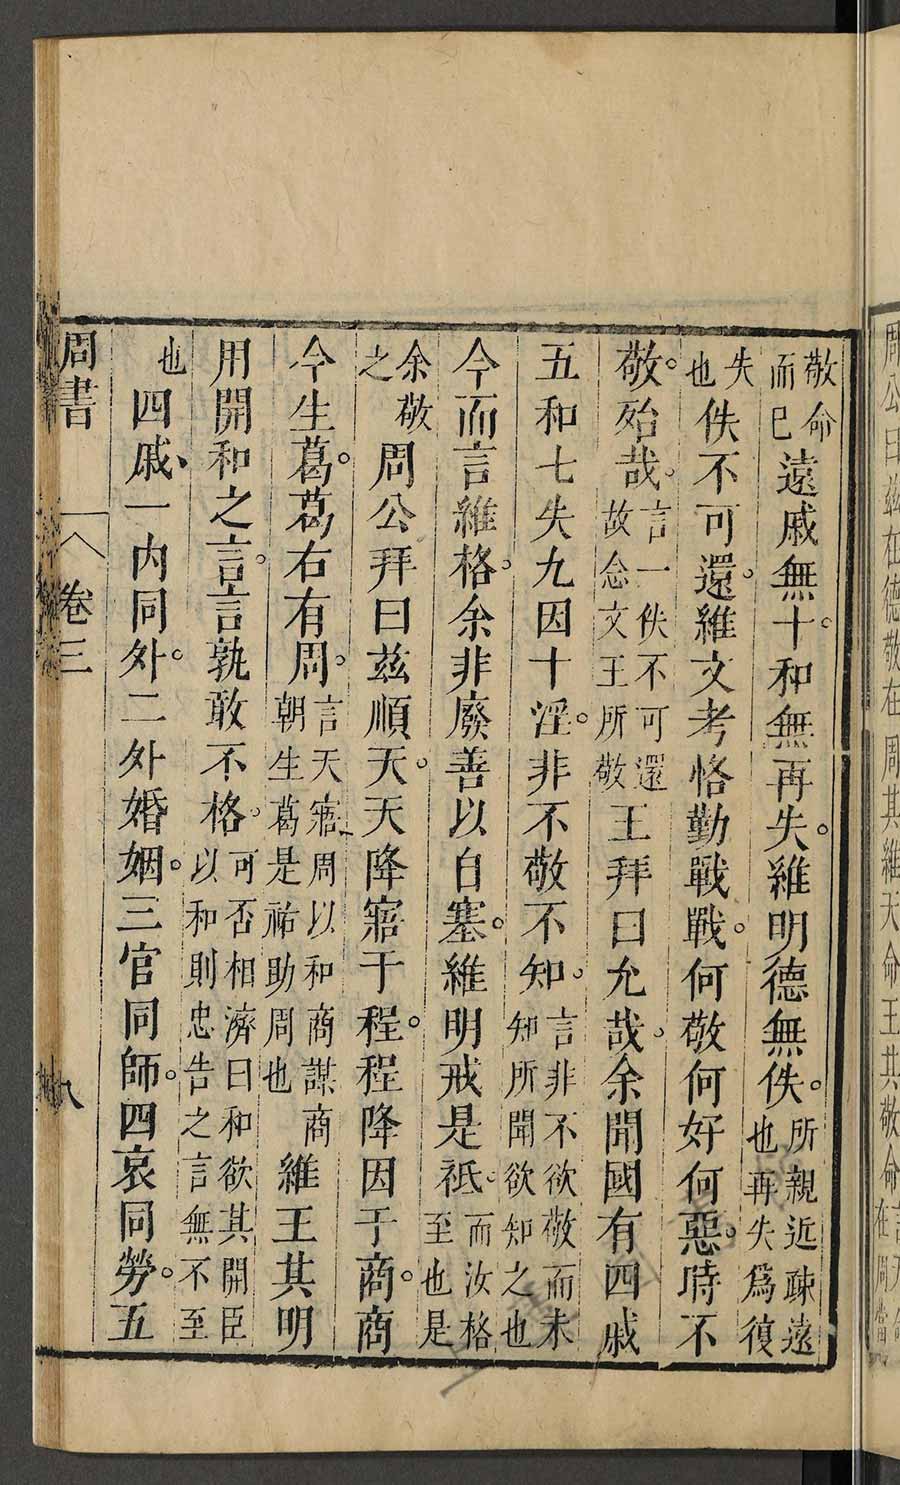 敬命而已遠戚無十和無再失維明德無佚所親近疎遠也再失爲復
失也佚不可還維文考恪勤戰戰何敬何好何惡時不
敬殆哉言一佚不可還故念文王所敬王拜曰允哉余聞國有四戚
五和七失九因十淫非不敬不知言非不欲敬而未知所聞欲知之也
今而言維格余非廢善以自塞維明戒是祗而汝格至也是
余敬之周公拜曰兹順天天降寤于程程降因于商商
今生葛葛右有周言天寤周以和商謀商朝生葛是祐助周也維王其明
用開和之言言孰敢不格可否相濟曰和欲其開臣以和則忠告之言無不至
也四戚一内同外二外婚姻三官同師四哀同勞五
周書
卷三
八